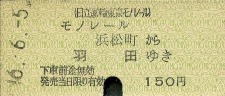 (日立運輸東京モノレール)
モノレール
浜松町から
羽田ゆき
下車前途無効
発売当日限り有効 150円